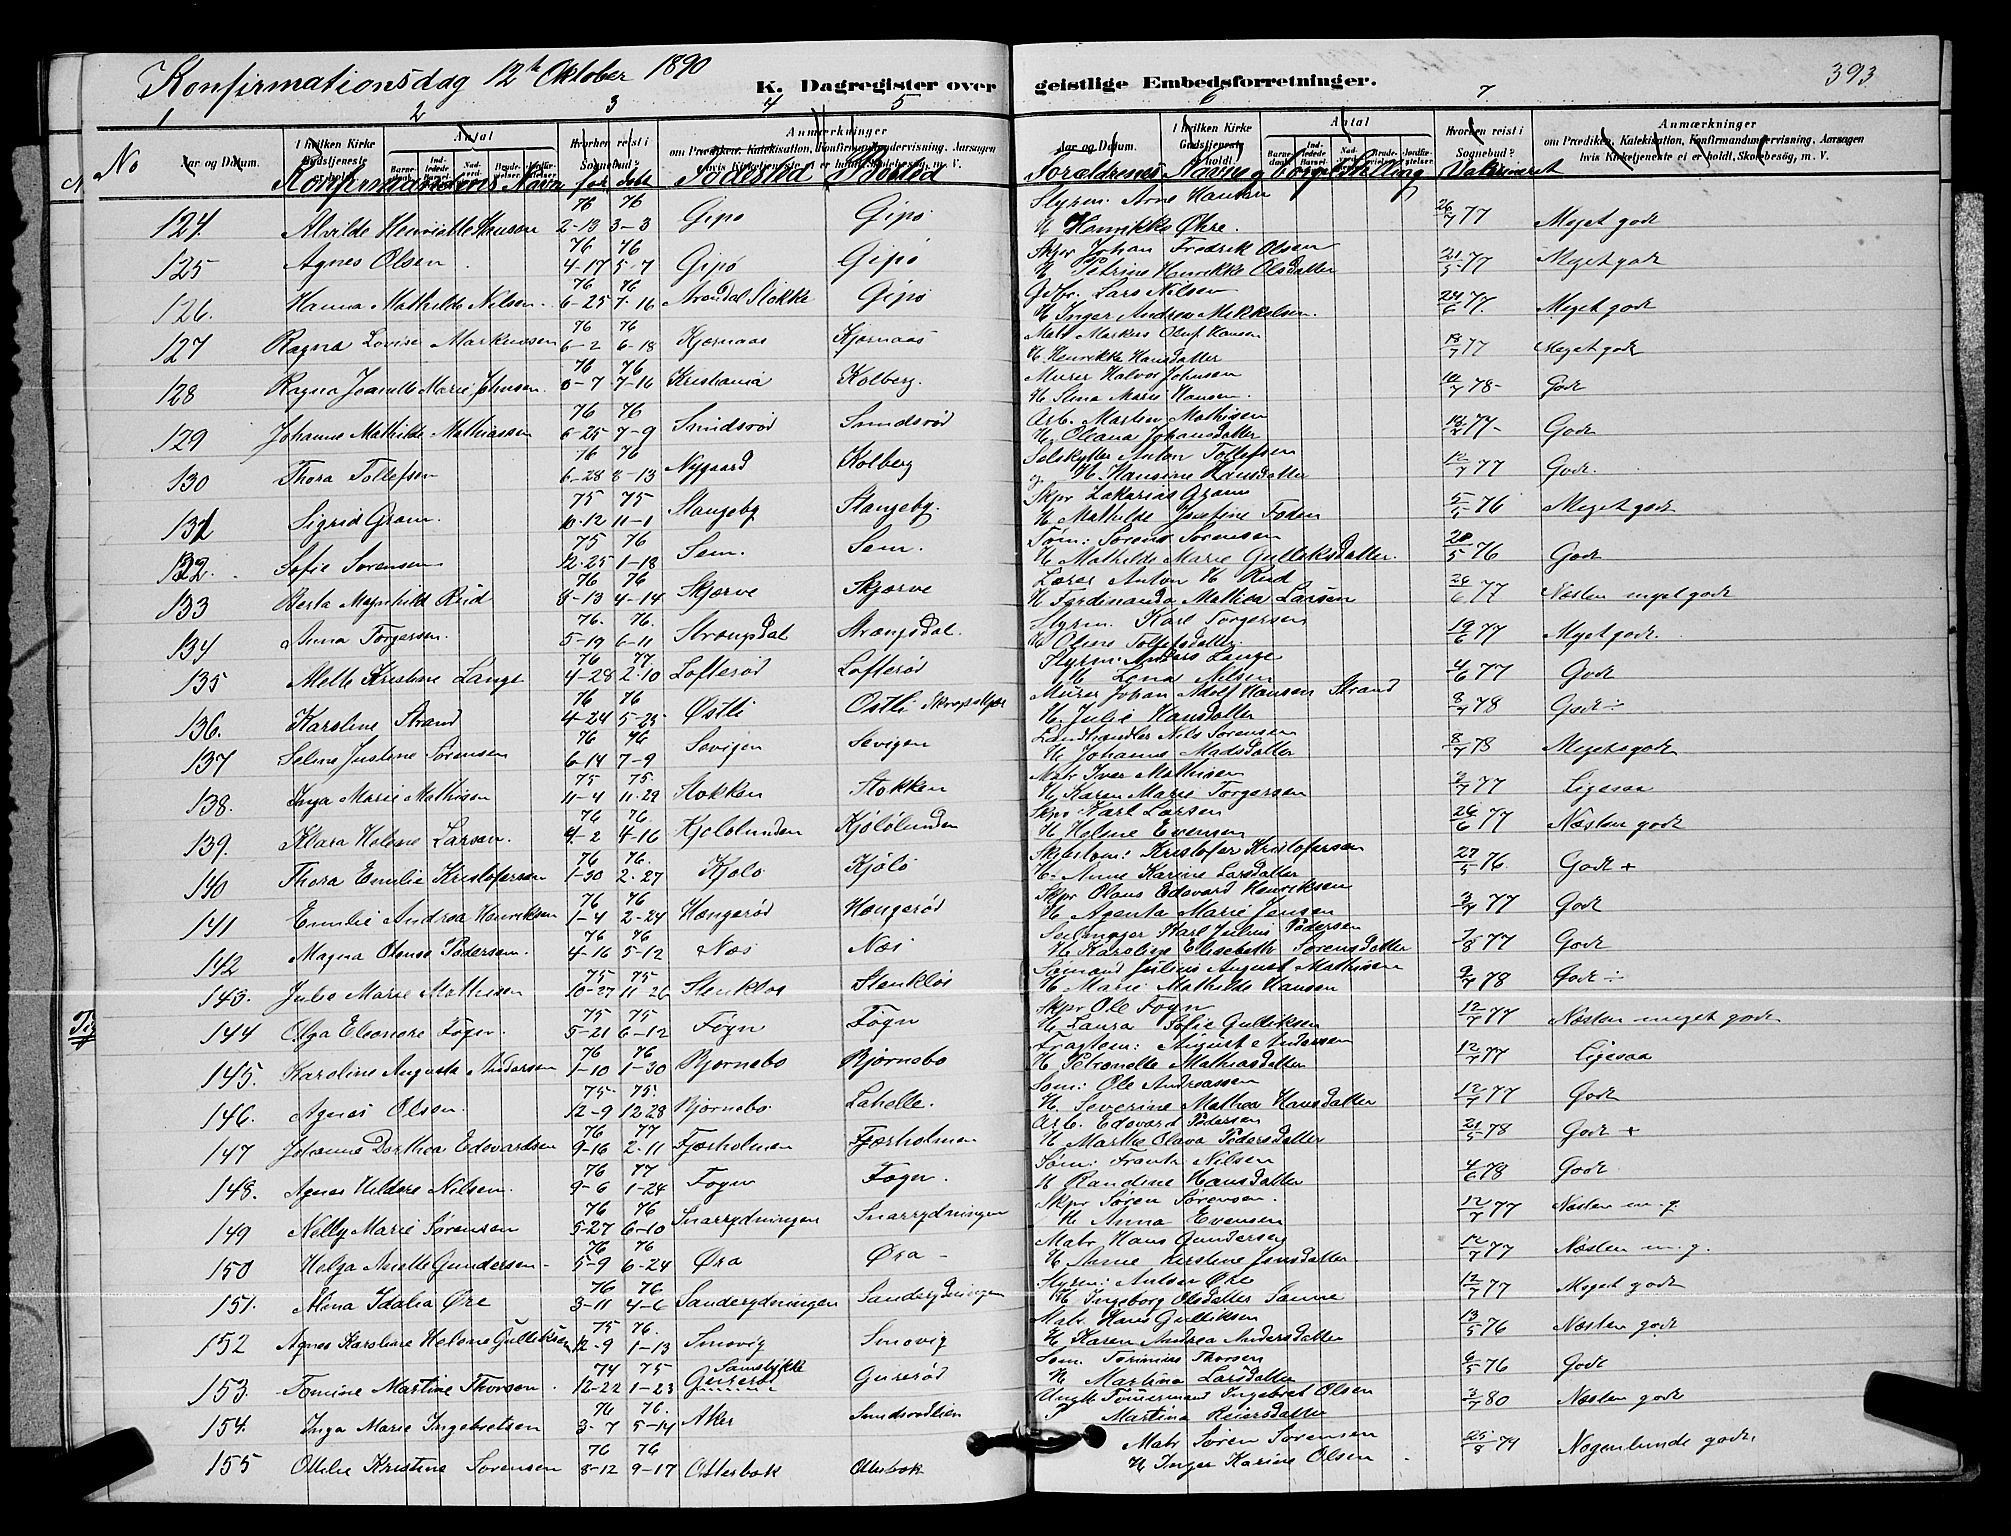 Konfirmationsdag 12te Oktober 1890
K. Dagregister over geistlige Embedsforretninger.
393
1 2 3 4 5 6 7
No Konfirmandens Navn født døbt Fødested Bosted Forældrenes Navn og Borgerl. Stilling Vakcineret
124. Alvilde Henriette Hansen 76 2-13 76 3-3 Gipø Gipø Styrm. Arne Hansen H. Henrikke Økre. 26/7 77 Meget godt
125 Agnes Olsen 76 4-17 76 5-7 Gipø Gipø Skpr Johan Fredrik Olsen H. Petrine Henrikke Olsdatter 21/5 77 Meget godt
126. Hanna Mathilde Nilsen 76 6-25 76 7-16 Arendal Stokke Gipø Gdbr. Lars Nilsen H. Inger Andrea Mikkelsen. 24/6 77. Meget godt
127 Ragna Lovise Markussen 76 6-2 76 6-18 Kjærnaas Kjærnaas Matr Markus Oluf Hansen H. Henrikke Hansdatter 18/7 77 Meget godt
128 Ragna Jeanette Marie Johnsen 76 6-7 76 7-16 Kristiania Kolberg. Murer Halvor Johnsen H. Stina Marie Hansen. 14/7 78 Godt
129 Johanne Mathilde Mathiassen 76 6-25 76 7-9 Smidsrød Smidsrød Arb. Martin Mathisen H. Oleana Johansdatter 77 Godt
130 Thora Tollefsen 76 6-28 76 8-13 Nygaard Kolberg Selskytter Anton Tollefsen H. Hansine Hansdatter 12/7 77 Godt.
131 Sigrid Gram. 75 10-12 75 11-1 Stangeby Stangeby. Skpr Zakarias Gram H. Mathilde Josefine Foden 5/5 76 Meget godt
132. Sofie Sørensen 75 12-25 76 1-18 Sem. Sem. Tøm: Søren Sørensen H. Mathilde Marie Gulliksdatter. 20/5 76 Godt
133 Berta Magnhild Rud 76 3-13 76 4-14 Skjærve Skjærve Lærer Anton H. Rud H. Ferdinanda Mathea Larsen 26/6 77 Næsten meget godt
134 Anna Torgersen. 76. 5-19 76. 6-11 Strengsdal Strengsdal. Styrm. Karl Torgersen H. Oline Tollefsdatter 19/6 77 Meget godt.
135 Mette Kristine Lange 76 4-28 77 2-10 Lofterød Lofterød Styrm: Anders Lange H. Lena Nilsen 4/6 77 Godt
136. Karoline Strand 76 4-24 76 5-25 Østli Østli Murer Johan Adolf Hansen Strand H. Julie Hansdatter 8/7 78 Godt ÷
137 Selma Justine Sørensen 76 6-14 76 7-9 Sevigen Sevigen Landhandler Nils Sørensen H. Johanne Madsdatter 8/7 78 Meget godt
138. Inga Marie Mathisen 75 11-4 75. 11-29 Stokken Stokken Matr Iver Mathisen H. Karen Marie Torgersen 77 Ligesaa
139. Klara Helene Larsen. 76 4-2 76. 4-16 Kjølølunden Kjølølunden Skpr Karl Larsen H. Helene Evensen 26/6 77 Næsten godt
140 Thora Emilie Kristofersen 76 1-30 76. 2-27 Kjølø Kjølø Skibstøm: Kristofer Kristofersen H. Anne Karine Larsdatter 27/5 76. Godt +
141 Emilie Andrea Henriksen 76 1-4 76 2-24 Hengerød Hengerød Skpr Olaus Edevard Henriksen H. Agenta Marie Jensen 77 Godt
142 Magna Olense Pedersen. 76 4-16 76 5-12 Næs Næs Karl Julius Pedersen H. Karoline Elisebeth Sørensdatter 77 Godt
143. Julie Marie Mathisen 75 10-27 75 11-26 Stenkløs Stenkløs Sømand Julius August Mathisen H. Marie Mathilde Hansen 78 Godt ÷
144 Olga Eleonore Føgn. 75 5-21 75 6-12 Føgn Føgn Skpr Ole Føgn H. Laura Sofie Gulliksen 12/7 77 Næsten meget godt
145. Karoline Augusta Andersen 76 1-10 76 1-30 Bjørnebo Bjørnebo August Andersen H. Petronelle Mathiasdatter 12/7 77 Ligesaa
146. Agnes Olsen. 75- 12-9 75. 12-28 Bjørnebo Lahelle. Søm: Ole Andreassen H. Severine Mathea Hansdatter 12/7 77 Godt
147 Johanne Dorthea Edevardsen 76 9-16 77 2-11 Fjærholmen Fjærholmen Arb. Edevard Pedersen H. Marthe Olava Pedersdatter 21/5 78 Godt +
148. Agnes Hildore Nilsen. 76 9-6 77 1-24 Føgn Føgn. Søm: Frantz Nilsen H. Randine Hansdatter 4/6 78 Godt
149 Nelly Marie Sørensen 76 5-27 76 6-10 Snarrydningen Snarrydningen Skpr Søren Sørensen. H. Anna Evensen 12/7 77 Næsten m. g.
150 Helga Anette Gundersen 76 5-9 76 6-24 Øra Øra Matr Hans Gundersen H. Anne Kirstine Jensdatter 12/7 77 Næsten m. g.
151. Alma Idalia Øre 76 3-11 76 4-6 Sanderydningen Sanderydningen Styrm: Anton Øre H. Ingeborg Olsdatter Sanne 12/7 77 Meget godt
152 Agnes Karoline Helene Gulliksen 75 12-9 76. 1-13 Smovig Smovig Matr Hans Gulliksen H. Karen Andrea Andersdatter 13/5 76 Næsten godt
153 Tomine Martine Thorsen. 74 12-22 75 1-23 Sandstykke Guserød Guserød Søm. Thorsen H. Martina Larsdatter 6/5 76 Godt
154. Inga Marie Ingebretsen 76 3-7 76. 5-14 Aker Smidsrødlien Ugift Tømmermand Ingebret Olsen P. Martina Reiersdatter 80 Næsten godt
155 Ottilie Kristine Sørensen 76 8-12 76 9-17 Otterbæk Otterbæk Matr Søren Sørensen H. Inger Karine Olsen 25/8 79 Nogenlunde godt.